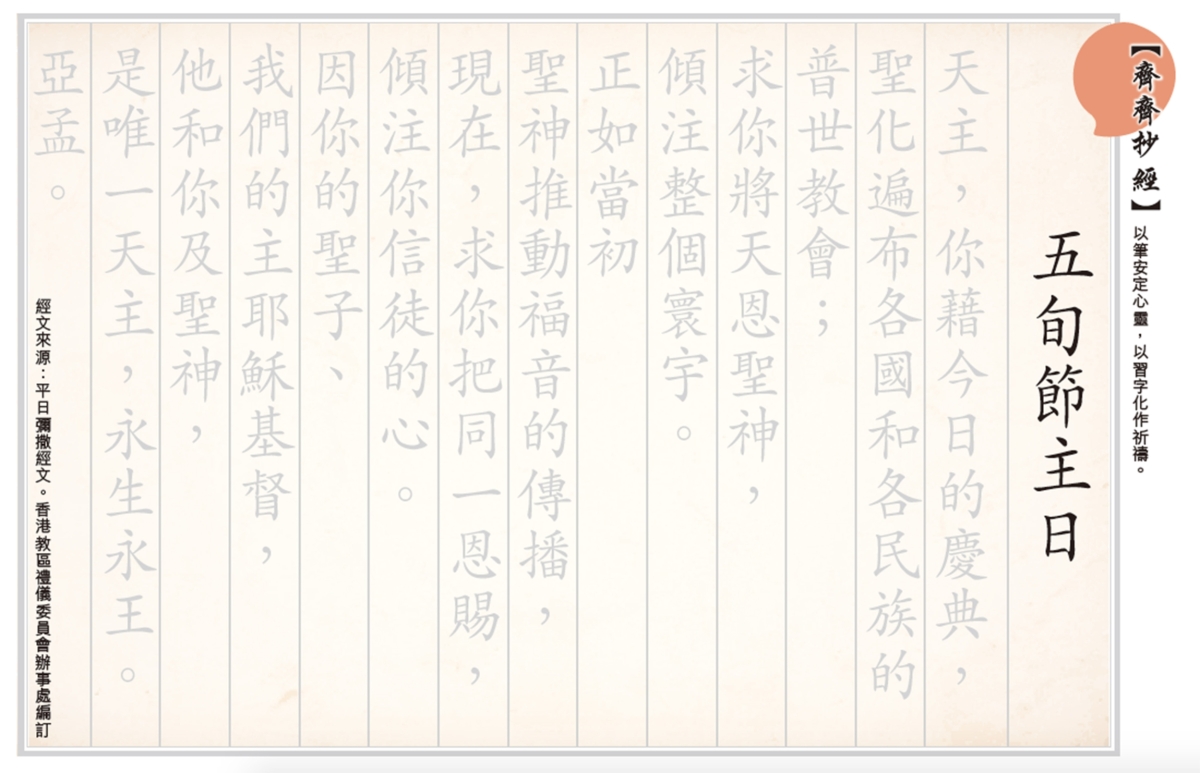 【齊齊抄經】以筆安定心靈，以習字化作祈禱。
五旬節主日
天主，你藉今日的慶典，
聖化遍布各國和各民族的
普世教會；
求你將天恩聖神，
傾注整個寰宇。
正如當初
聖神推動福音的傳播，
現在，求你把同一恩賜，
傾注你信徒的心。
因你的聖子、
我們的主耶穌基督，
他和你及聖神，
是唯一天主，永生永王。
亞孟。
經文來源：平日彌撒經文。香港教區禮儀委員會辦事處編訂